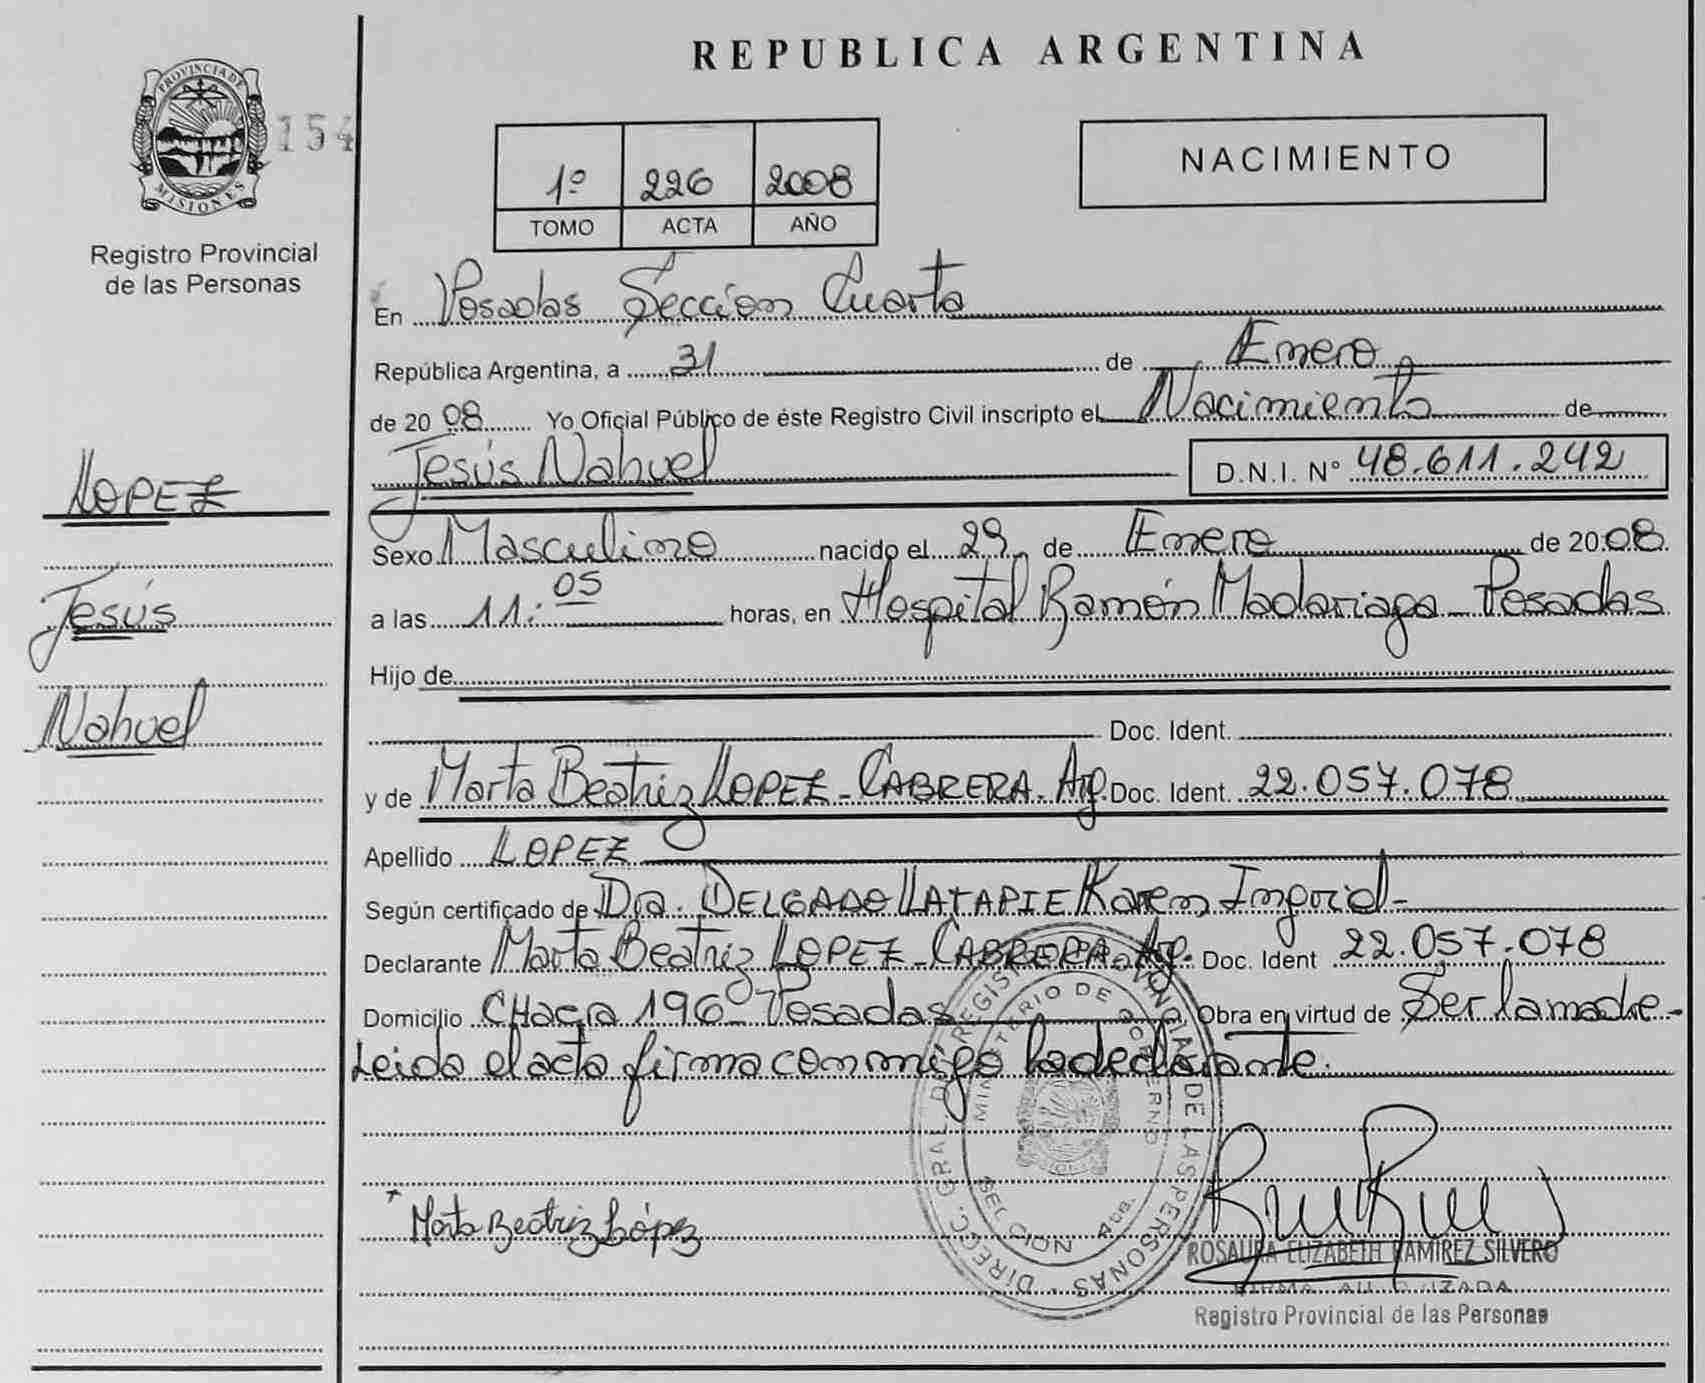 REPUBLICA ARGENTINA
PROVINCIA DE
MISIONES
154
Registro Provincial
de las Personas
1º 226 2008
TOMO ACTA AÑO
NACIMIENTO
En Posadas Sección Cuarta
República Argentina, a 31 de Enero
de 2008 Yo Oficial Público de éste Registro Civil inscripto el Nacimiento de
Jesús Nahuel D.N.I. Nº 48.611.242
LOPEZ
Jesús
Nahuel
Sexo Masculino nacido el 29 de Enero de 2008
a las 11:05 horas, en Hospital Ramón Madariaga - Posadas
Hijo de
Doc. Ident.
y de Marta Beatriz LOPEZ - CABRERA - Arg. Doc. Ident. 22.057.078
Apellido LOPEZ
Según certificado de Dra. DELGADO LATAPIE Karen Ingrid -
Declarante Marta Beatriz LOPEZ - CABRERA - Arg. Doc. Ident 22.057.078
Domicilio CHacra 196 - Posadas Obra en virtud de Ser la madre -
Leida el acta firma conmigo la declarante.
Marta Beatriz López
DIREC. GRAL. DEL REGISTRO PROVINCIAL DE LAS PERSONAS
MINISTERIO DE GOBIERNO
ROSAURA ELIZABETH RAMIREZ SILVERO
FIRMA AUTORIZADA
Registro Provincial de las Personas